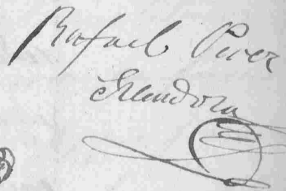 Rafael Pérez
Mendoza